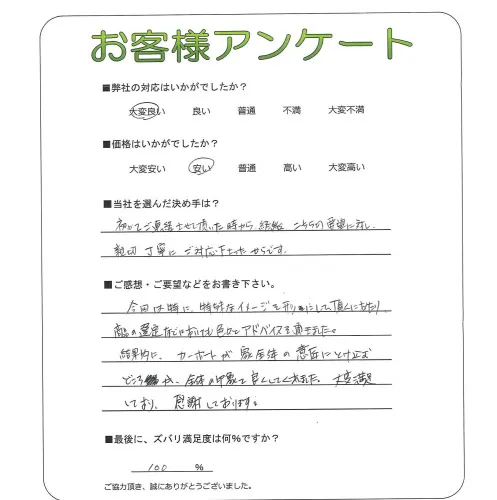 お客様アンケート
■弊社の対応はいかがでしたか？
大変良い 良い 普通 不満 大変不満
■価格はいかがでしたか？
大変安い 安い 普通 高い 大変高い
■当社を選んだ決め手は？
初めてご連絡させて頂いた時から、こちらの要望に対し、
親切 丁寧に ご対応下さったからです。
■ご感想・ご要望などをお書き下さい。
今回は特に、特殊なイメージを形にして頂くにあたり、
商品の選定 色々とアドバイスを頂きました。
結果的に、カーポートが 家全体の 意匠に とけ込む
どころか、全体の印象を良くしてくれました。大変満足
しており、感謝しております。
■最後に、ズバリ満足度は何％ですか？
100 ％
ご協力頂き、誠にありがとうございました。